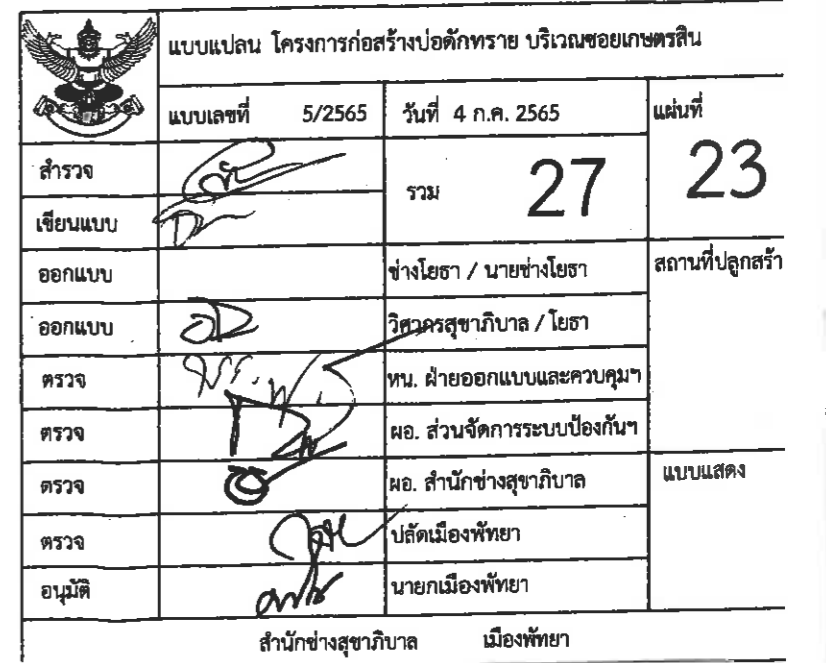 แบบแปลน โครงการก่อสร้างบ่อดักทราย บริเวณซอยเกษตรสิน
แบบเลขที่ 5/2565 วันที่ 4 ก.ค. 2565 แผ่นที่
สำรวจ รวม 27 23
เขียนแบบ
ออกแบบ ช่างโยธา / นายช่างโยธา สถานที่ปลูกสร้า
ออกแบบ วิศวกรสุขาภิบาล / โยธา
ตรวจ หน. ฝ่ายออกแบบและควบคุมฯ
ตรวจ ผอ. ส่วนจัดการระบบป้องกันฯ
ตรวจ ผอ. สำนักช่างสุขาภิบาล แบบแสดง
ตรวจ ปลัดเมืองพัทยา
อนุมัติ นายกเมืองพัทยา
สำนักช่างสุขาภิบาล เมืองพัทยา